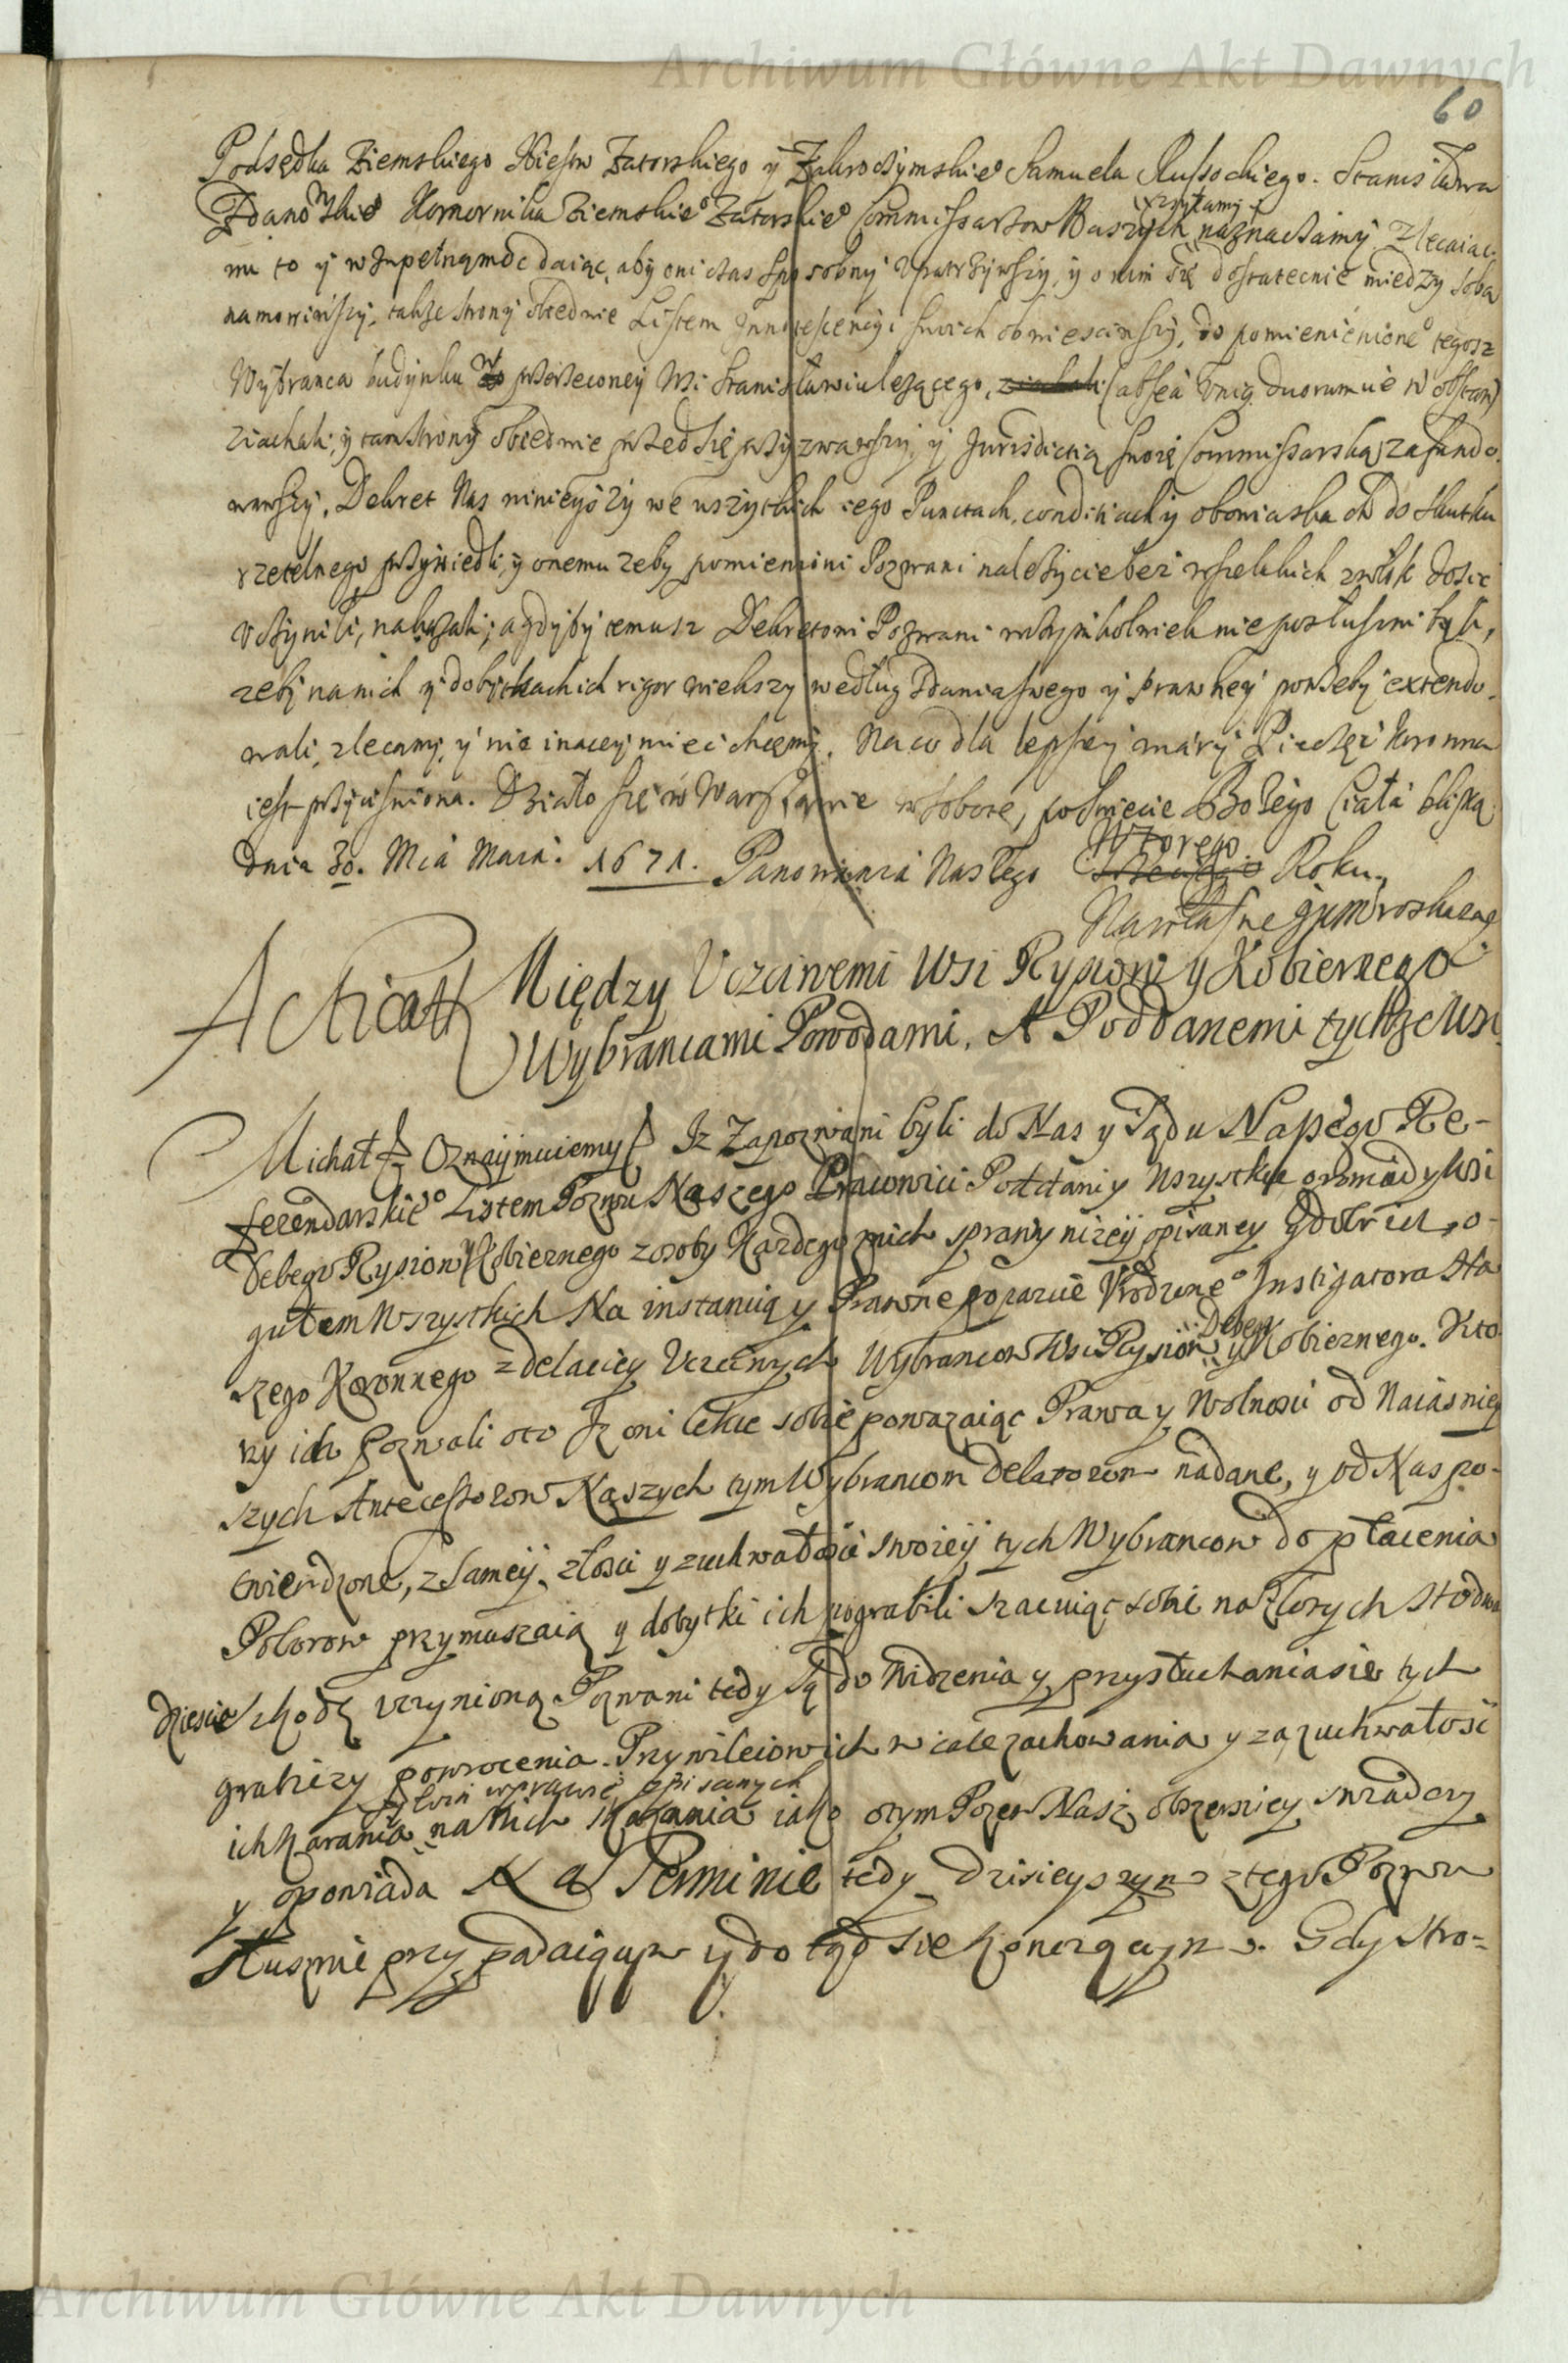 Archiwum Główne Akt Dawnych
60
Podsędka Ziemskiego Xięstw Zatorskiego y Zakroczymskie° Samuela Russockiego. Stanisława
Zdanowskie° Komornika Ziemskie° Zatorskie° Commissarzow Naszych naznaczamy zsyłamy Zlecaiąc
im to y w zupełną moc daiąc, aby oni czas sposobny upatrzywszy, y o nim się dostatecznie miedzy sobą
namowiwszy, także strony obiedwie Listem Innotescencyi swoich obwiesciwszy, do pomienienione° tegosz
Wybranca budynku w przerzeconey Wsi Stanisławiu leżącego, (absen unius duorumue n obstan)
ziachali, y tam strony obiedwie przed się przyzwawszy, y Jurisdictią swoię Commissarską zafundo
wawszy, Dekret Nas ninieyszy we wszytkich iego Punctach, conditiach y obowiaskach do skutku
rzetelnego przywiedli, y onemu zeby pomienieni Pozwani należycie bez wszelkich zwłok dosić
uczynili, nakazali; a gdyby temusz Dekretowi Pozwani w czymkolwiek nie posłuszni byli,
zeby na nich y dobytkach ich rigor wiekszy według zdania swego y prawney potrzeby extendo
wali, zlecamy, y nie inaczey mieć chcemy. Na co dla lepszey wiary Pieczęć Koronna
iest przyciśniona. Działo się w Warszawie w Sobotę, po Swiecie Bożego Ciała bliską
dnia 30. Mca Maia. 1671. Panowania Naszego Wtorego Roku.
Na własne JKM roskazać
Acticat Między Uczciwemi Wsi Rysiow y Kobiernego
Wybrancami Powodami, A Poddanemi tychże Wsi
Michał Oznaymuiemy Iz Zapozwani byli do Nas y Sądu Naszego Re-
ferendarskie° Listem Pozwu Naszego Pracowici Poddani y Wszystkie gromady Wsi
Debego Rysiow Kobiernego z osoby Kazdego z nich sprawy niżey opisaney y dobr ich o-
gułem Wszystkich Na instantią y Prawne poparcie Urodzone° Instigatora Na
szego Koronnego z delaciey Uczciwych Wybrancow Wsi Rysiow Debego y Kobiernego. Kto
rzy ich pozwali oto Iz oni lekce sobie poważaiąc Prawa y Wolnosci od Naiasniey
szych Antecessorow Naszych tym Wybrancom delatorom nadane, y od Nas po-
twierdzone, z samey złosci y zuchwałosci swoiey tych Wybrancow do płacenia
Poborow przymuszaią y dobytki ich pograbili szacuiąc sobie na złotych sto dwa
dziescia szkodę uczynioną Pozwani tedy są do Widzenia y przysłuchania sie tych
grabieży powrocenia. Przywileiow ich w cale zachowania y za zuchwałosć
ich karania na nich skazania w prawie opisanych iako o tym Pozew Nasz obszerniey swiadczy
y opowiada Na Terminie tedy dzisieyszym z tego Pozwu
słusznie przypadaiącym y do tąd sie kończącym. Gdy stro-
Archiwum Główne Akt Dawnych